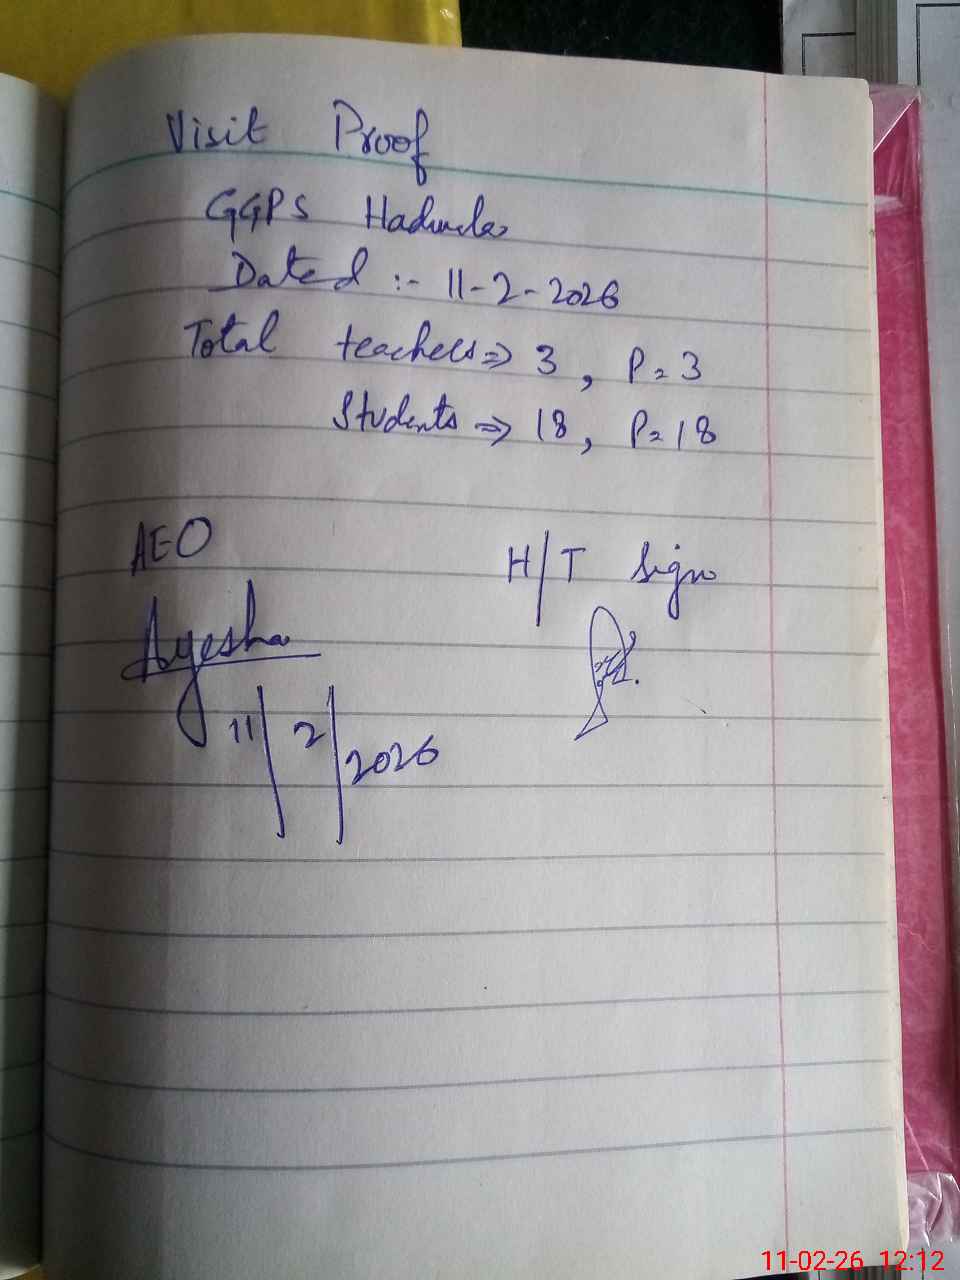 Visit Proof
GGPS
Dated :- 11-2-2026
Total teachers => 3, P=3
Students => 18, P=18
AEO
H/T Sign
Ayesha
11/2/2026
11-02-26 12:12